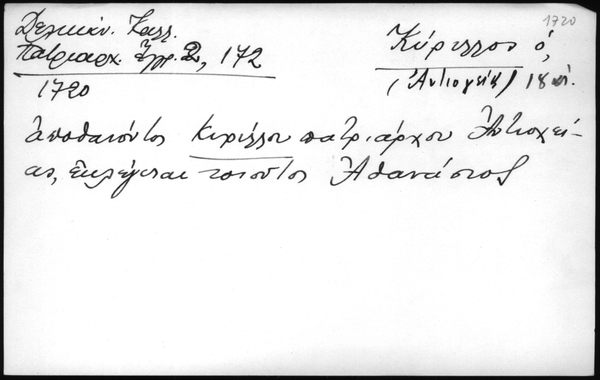 1720
Δελικάν. Καλλ.
Πατριαρχ. Ἔγγρ. 2, 172
1720
Κύριλλος ὁ,
(Ἀντιοχείας) 18 αἰ.
ἀποθανόντος Κυρίλλου πατριάρχου Ἀντιοχεί-
ας, ἐκλέγεται τοιοῦτος Ἀθανάσιος